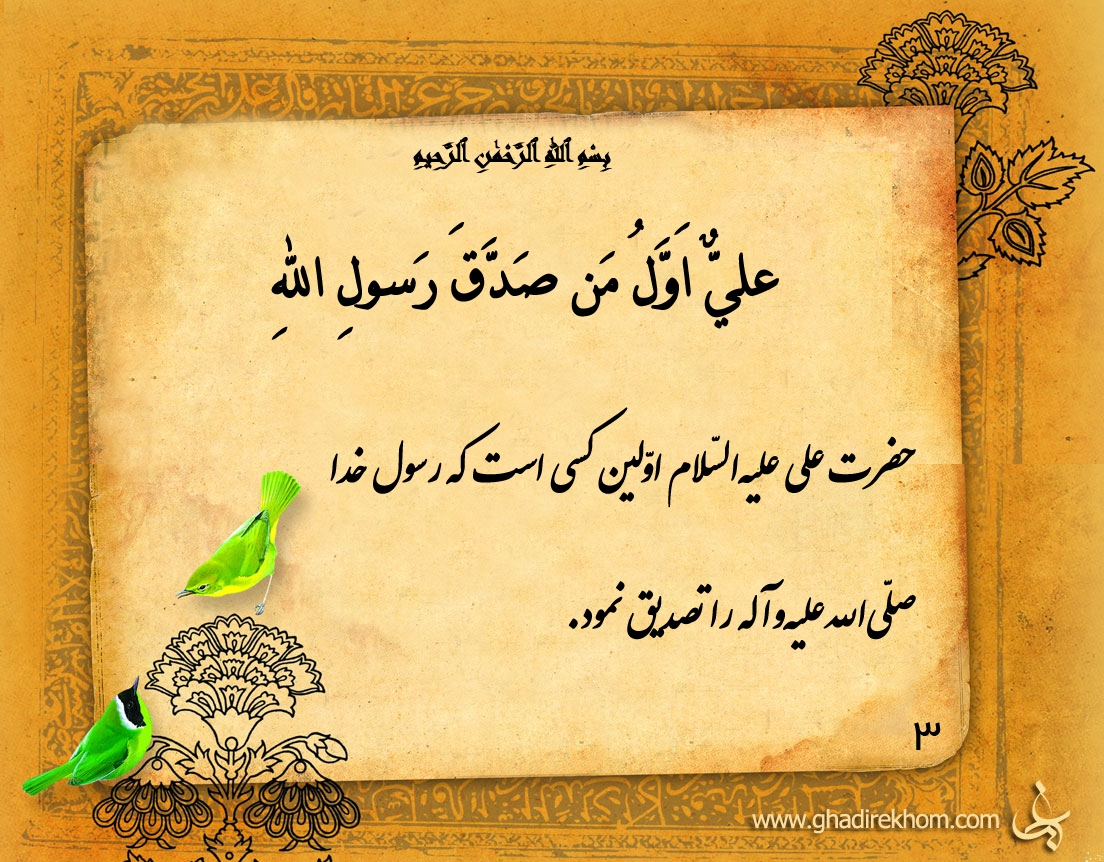 بِسْمِ اللهِ الرَّحْمٰنِ الرَّحِیمِ
عليٌّ اَوَّلُ مَن صَدَّقَ رَسولِ اللهِ
حضرت علی علیه‌السّلام اوّلین کسی است که رسول خدا
صلّی‌الله علیه‌وآله را تصدیق نمود.
۳
www.ghadirekhom.com